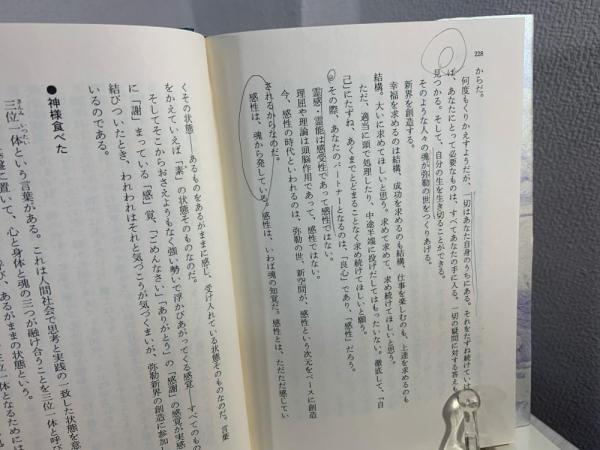 228
からだ。
何度もくりかえすようだが、一切はあなた自身のうちにある。それをたずね続けていけ
ば、あなたにとって必要なものは、すべてあなたの手に入る。一切の疑問に対する答えも
見つかる。そして、自分の生を生き切ることができる。
そのような人々の魂が弥勒の世をつくりあげる。
新界を創造する。
幸福を求めるのは結構、成功を求めるのも結構、仕事を楽しむのも、上達を求めるのも
結構。大いに求めてほしいと思う。求めて求めて、求め続けてほしいと思う。
ただ、適当に頭で処理したり、中途半端に投げだしてはもったいない。徹底して、「自
己」にたずね、あくまでとどまることなく求め続けてほしいと願う。
その際、あなたのパートナーとなるのは、「良心」であり、「感性」だろう。
霊感・霊能は感受性であって感性ではない。
理屈や理論は頭脳作用であって、感性ではない。
今、感性の時代といわれるのは、弥勒の世、新空間が、感性という次元をベースに創造
されるからなのだ。
感性は、魂から発している。感性は、いわば魂の知覚だ。感性とは、ただただ感じてい
くその状態──あるものをあるがままに感じ、受け入れている状態そのものなのだ。言葉
をかえていえば「素」の状態そのものなのだ。
そしてそこからおさえようもなく強い勢いで浮かびあがってくる感覚──すべてのもの
に「謝」まっている「感」覚、「ごめんなさい」「ありがとう」の「感謝」の感覚が実感
結びついたとき、われわれはそれと気づこうが気づくまいが、弥勒新界の創造に参加し
いるのである。
●神様食べた
三位一体という言葉がある。これは人間社会で思考と実践の一致した状態を意
に置いて、心と身体と魂の三つが融け合うことを三位一体と呼び
び、あるがままの状態という。
三位一体となるためには